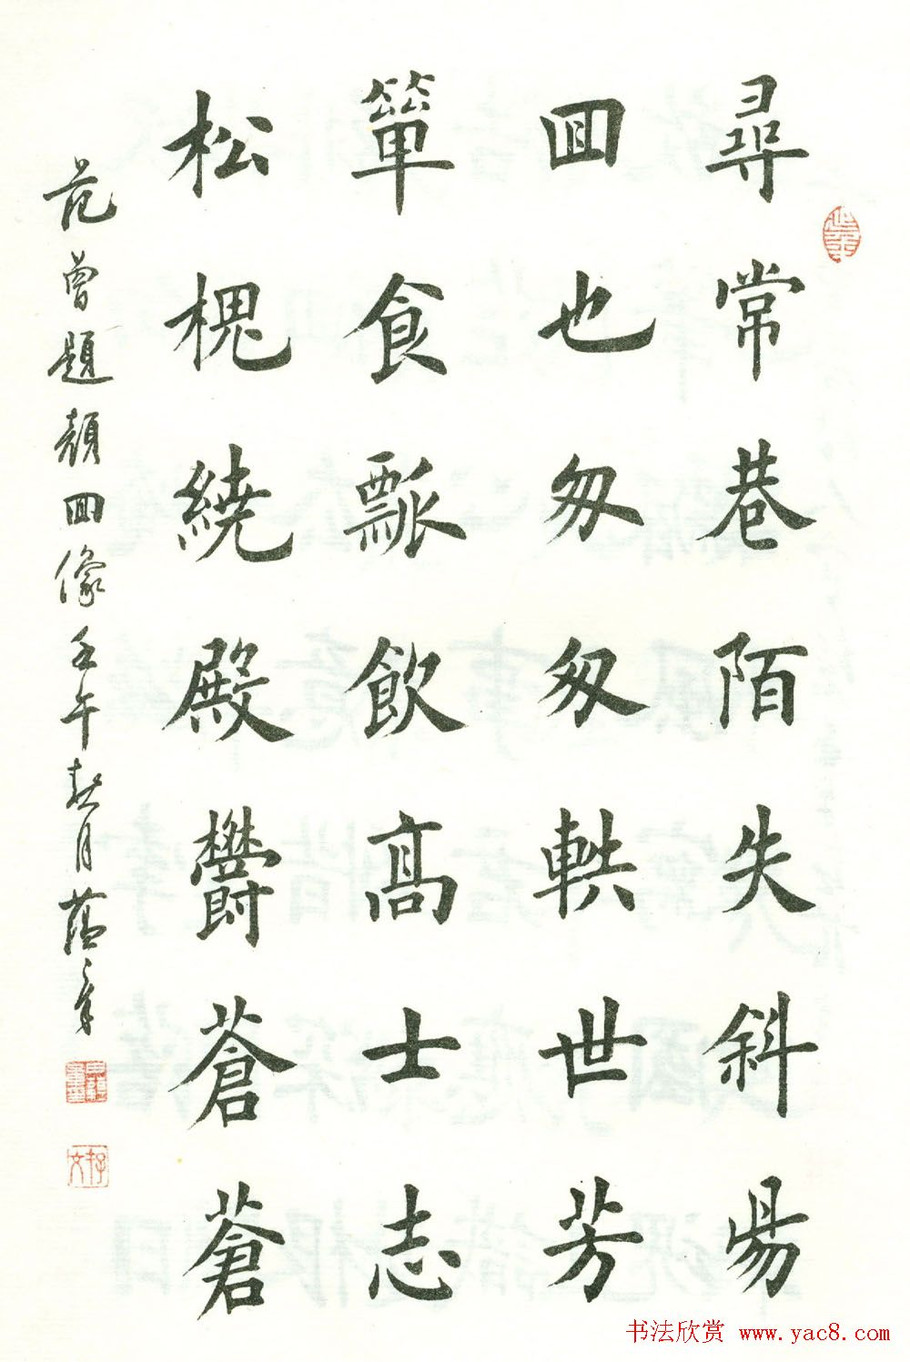 尋常巷陌失斜昜
囬也匆匆軼世芳
簞食瓢飲高士志
松槐繞殿欝蒼蒼
范曾題顏囬像壬午
月
书法欣赏 www.yac8.com